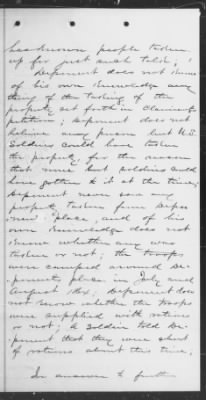 has known people taken
up for just such talk;
Deponent does not know
of his own knowledge any
thing of the taking of the
property set forth in Claimant's
petition; Deponent does not
believe any person but U.S.
Soldiers could have taken
the property, for the reason
that none but soldiers could
have gotten at it at the time;
Deponent never saw any
property taken from
place, and of his
own knowledge does not
know whether any was
taken or not; the troops
were camped around De-
ponent's place in July and
August 1864. Deponent does
not know whether the troops
were supplied with rations
or not; a Soldier told De-
ponent that they were short
of rations about this time.
In answer to further